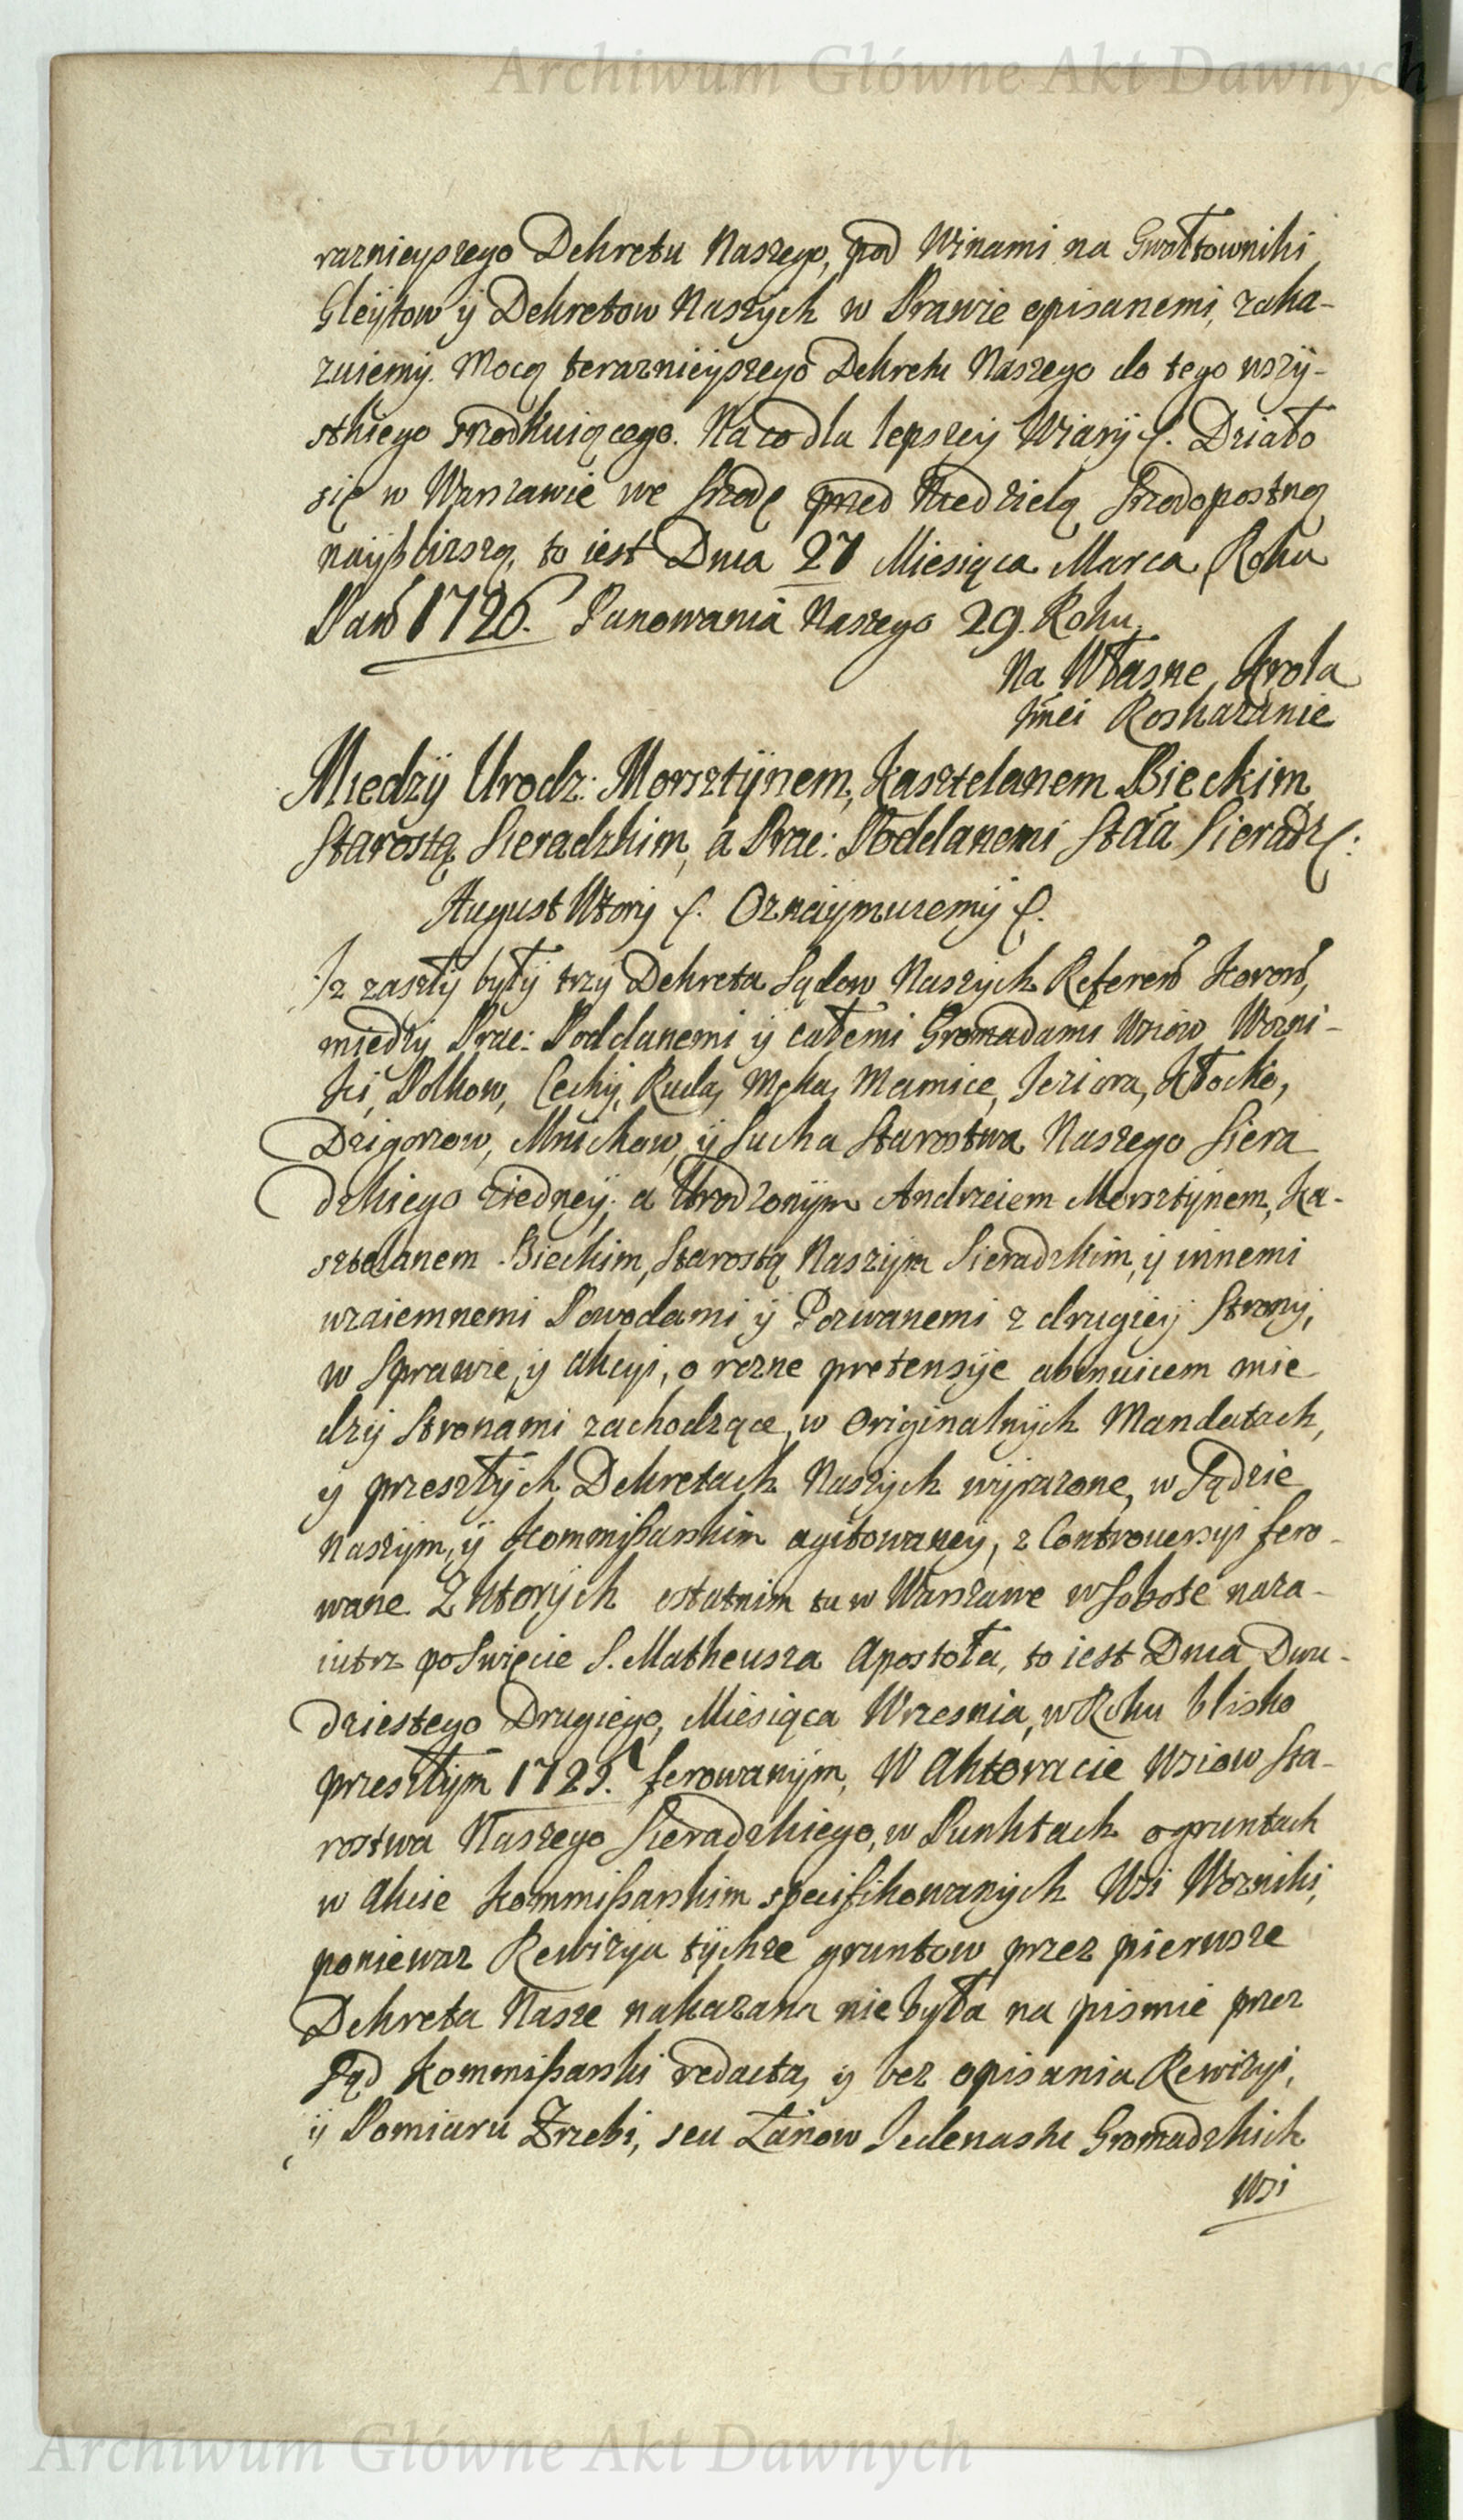 Archiwum Główne Akt Dawnych
raznieyszego Dekretu Naszego, pod Winami na Gwałtowniki
Gleytow ÿ Dekretow Naszÿch w Prawie opisanemi, zaka-
zuiemÿ. Mocą teraznieÿszego Dekretu Naszego do tego wszÿ-
stkiego srzodkuiącego. Na co dla lepszeÿ Wiarÿ &. Działo
się w Warszawie we Srzodę przed Niedzielą Srzodopostną
naÿblizszą, to iest Dnia 27 Miesiąca Marca Roku
Pań 1726. Panowania Naszego 29. Roku.
Na Własne Krola
Jmći Roskazanie
Miedzÿ Urodz: Morsztÿnem, Kasztelanem Bieckim
Starostą Sieradzkim, á Prac: Poddanemi Stťa Sieradz:
August Wtorÿ &. Oznaÿmuiemÿ &.
Iz zaszłÿ bÿłÿ trzÿ Dekreta Sądow Naszÿch Refereń Koroń,
miedzÿ Prac: Poddanemi ÿ całemi Gromadami Wsiow Wozni-
ki, Polkow, Cechÿ, Ruda, Męka, Mamice, Jeziora, Kłocko,
Dzigorzow, Mnichow, ÿ Sucha Starostwa Naszego Siera
dzkiego ziedneÿ; a Urodzonÿm Andrzeiem Morsztÿnem, Ka-
sztelanem Bieckim, Starostą Naszÿm Sieradzkim, ÿ innemi
wzaiemnemi Powodami ÿ Pozwanemi z drugieÿ Stronÿ,
w Sprawie, ÿ Akcyi, o rozne pretensÿe abinuicem mie
dzÿ Stronami zachodzące, w Originalnÿch Mandatach,
ÿ przeszłÿch Dekretach Naszÿch wÿrazone, w Sądzie
Naszÿm, ÿ Kommissarskim agitowaney, z Controuersyi fero-
wane. Z Ktorÿch ostatnim tu w Warszawe w Sobote naza-
iutrz po Swięcie S. Matheusza Apostoła, to iest Dnia Dwu-
dziestego Drugiego, Miesiąca Wrzesnia, w Roku blisko
przeszłÿm 1725. ferowanÿm, W Aktoracie Wsiow Sta-
rostwa Naszego Sieradzkiego, w Punktach o gruntach
w Akcie Kommissarskim specifikowanÿch Wsi Wozniki,
poniewaz Rewizÿa tÿchze gruntow przez pierwsze
Dekreta Nasze nakazana nie bÿła na pismie przez
Sąd Kommissarski redacta, ÿ bez opisania Rewizyi,
ÿ Pomiaru Zrzebi, seu Łanow Iedenastu Gromadzkich
Wsi
Archiwum Główne Akt Dawnych